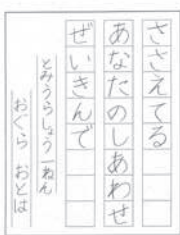 ささえてる
あなたのしあわせ
ぜいきんで
とみうらしょう一ねん
おぐら おとは